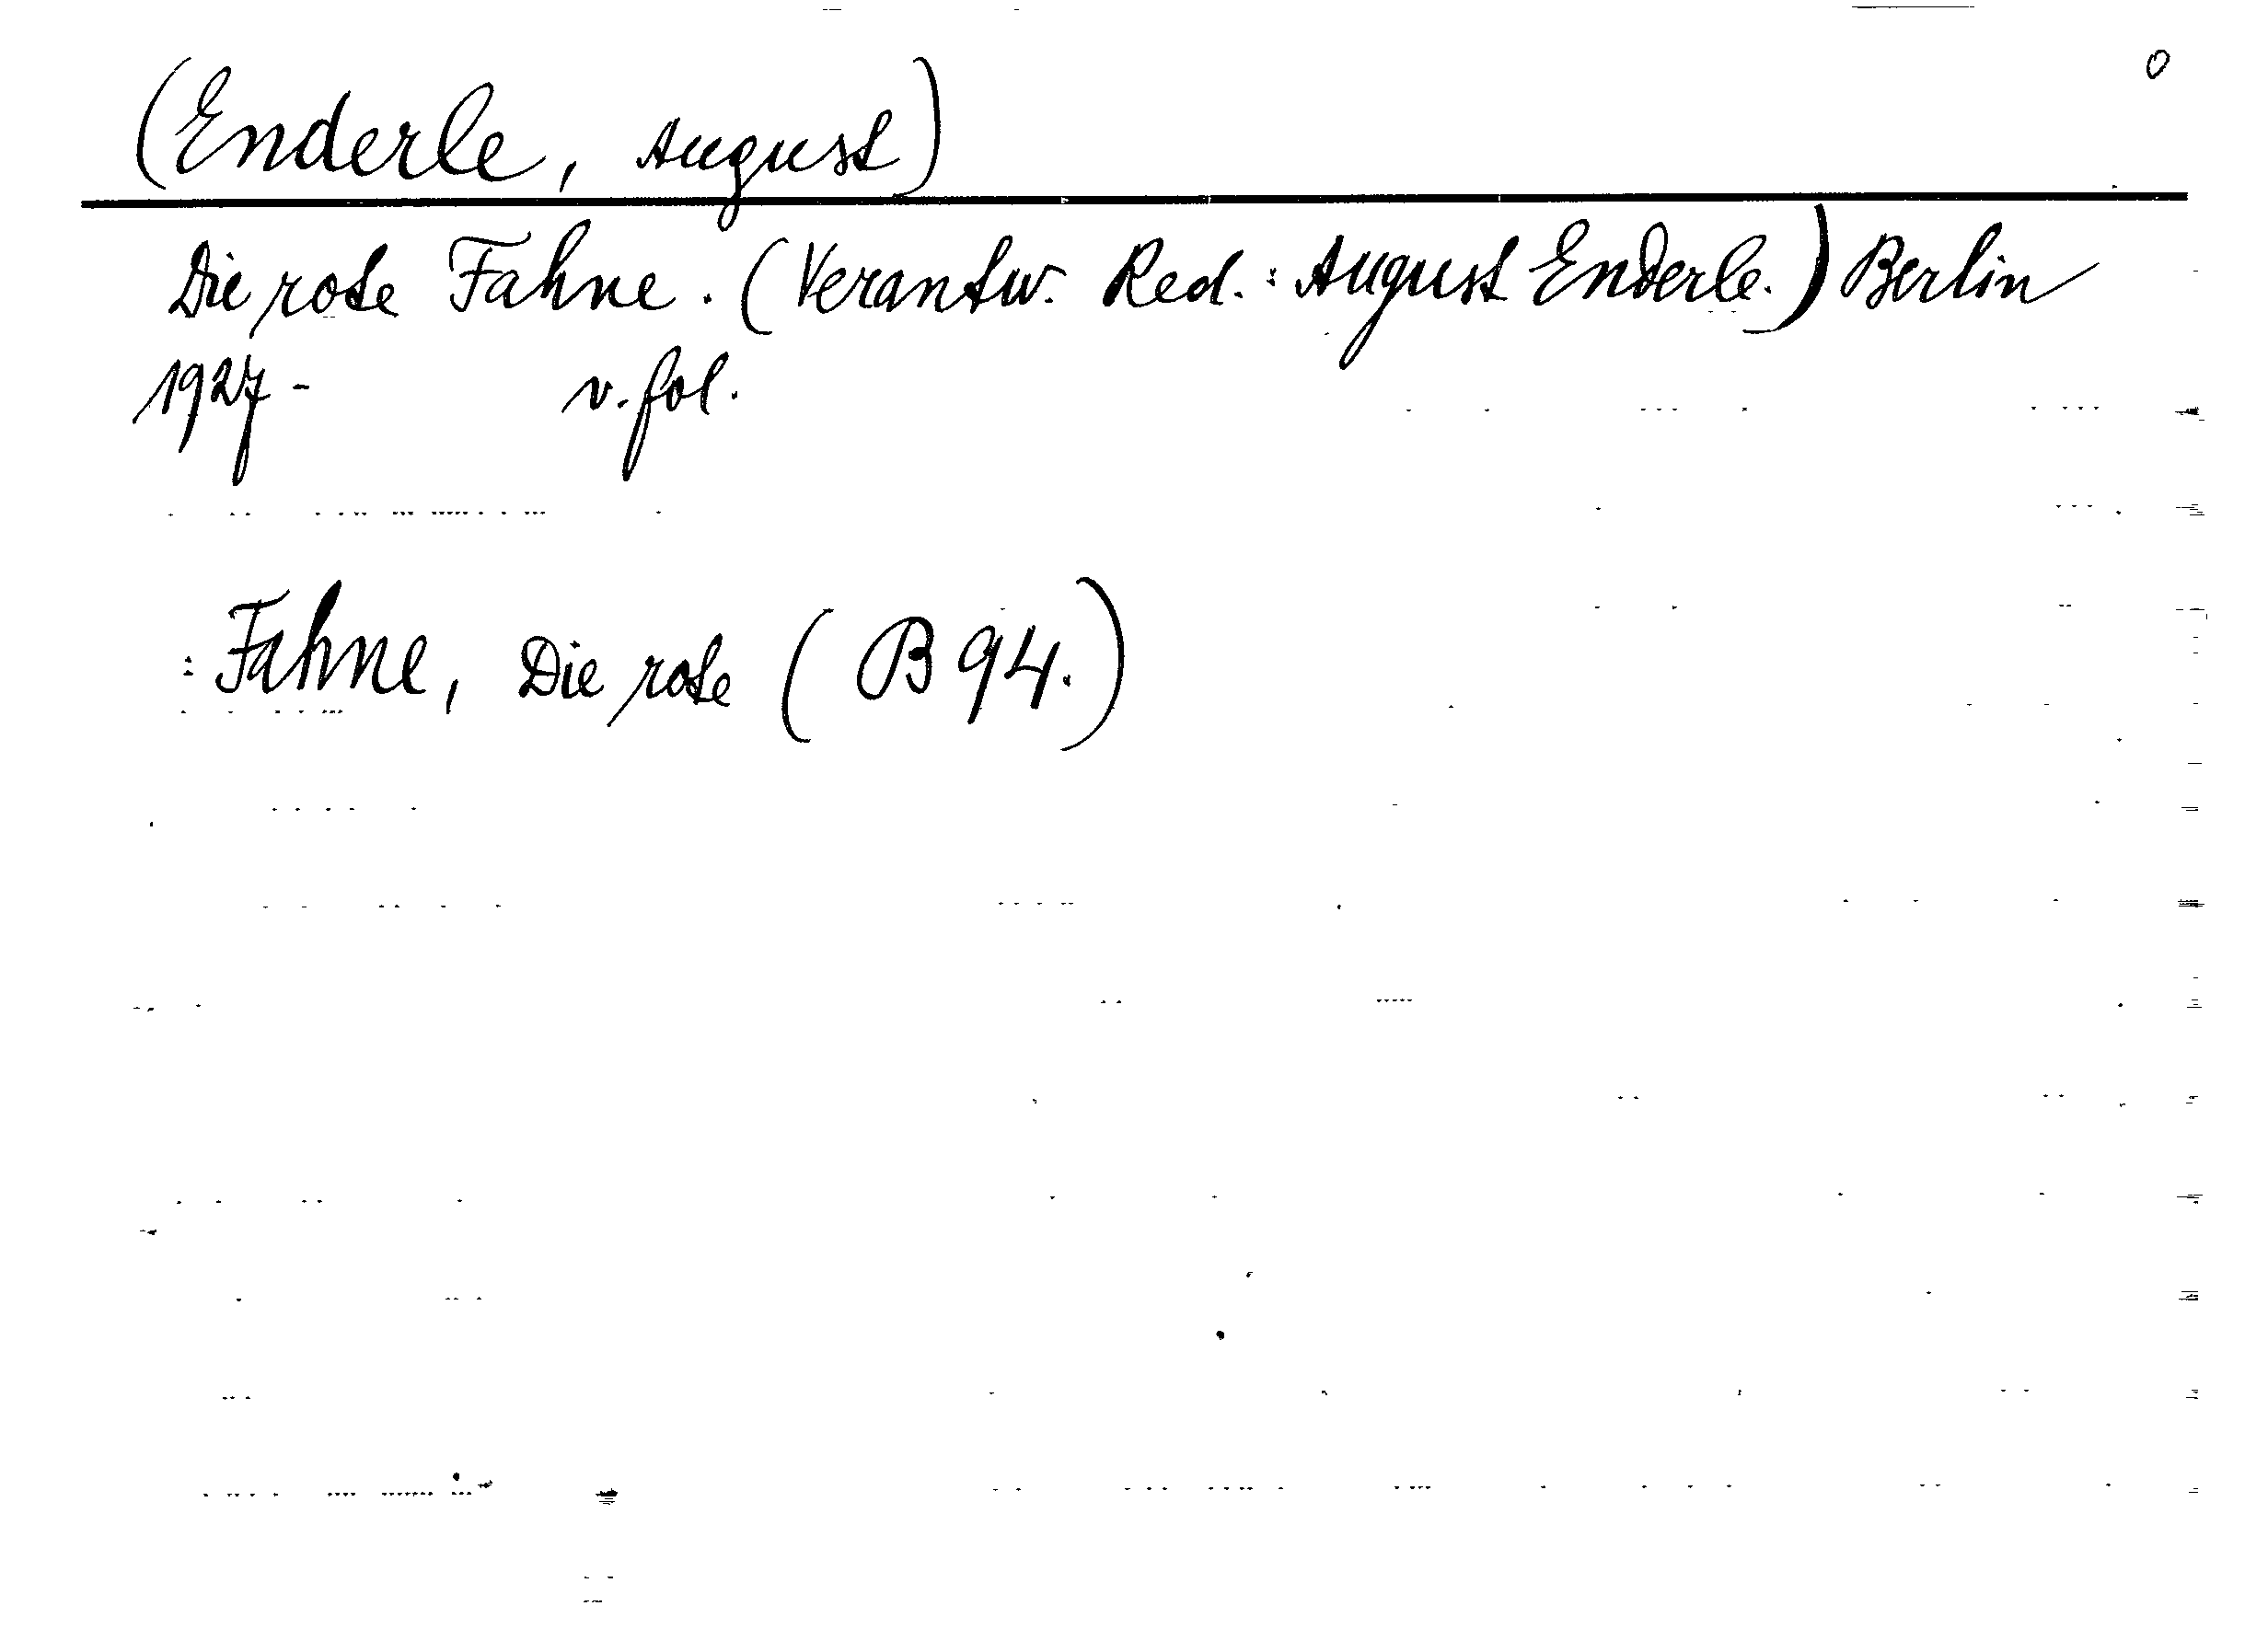 0
(Enderle, August)
Die rote Fahne. (Verantw. Red.: August Enderle.) Berlin
1927- v. fol.
: Fahne, Die rote (B 94.)